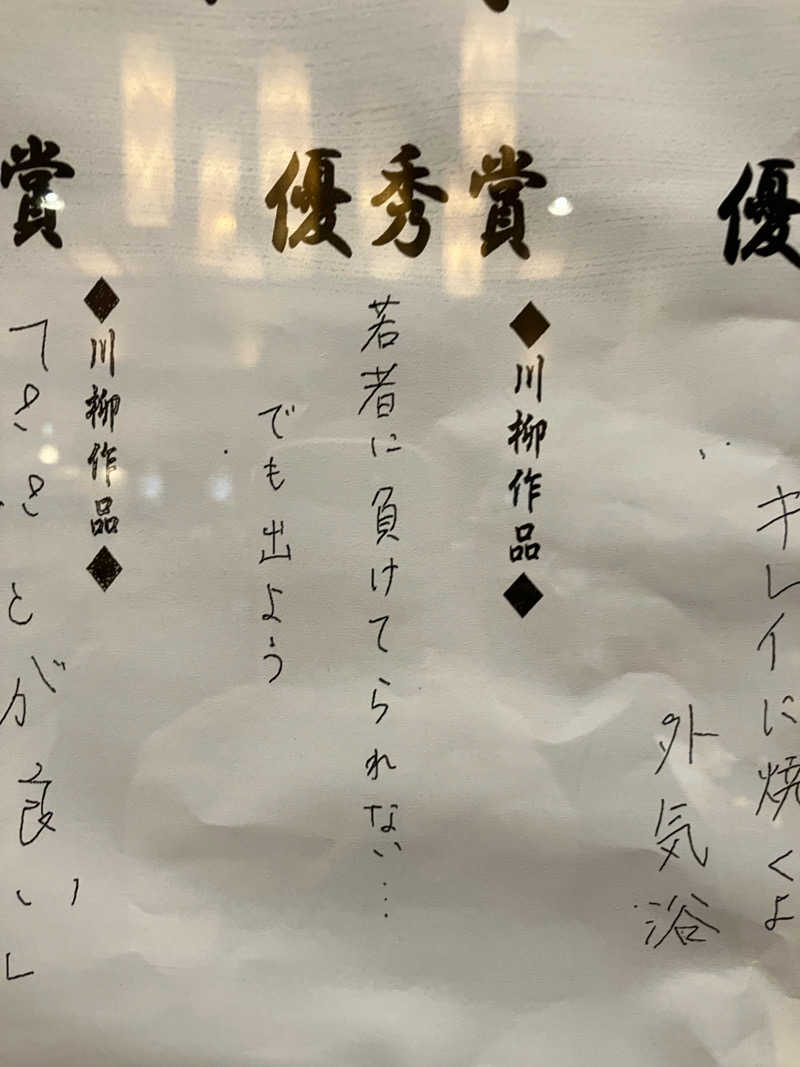 優
キレイに焼くよ
外気浴
優秀賞
◆川柳作品◆
若者に負けてられない…
でも出よう
賞
◆川柳作品◆